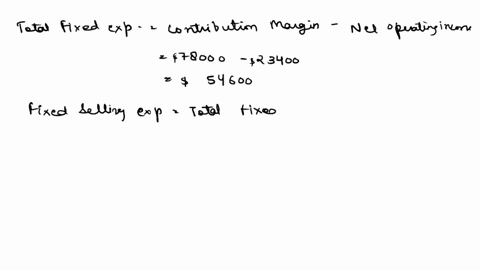 Total Fixed exp. = Contribution Margin - Net operating income
= $78000 - $23400
= $ 54600
Fixed Selling exp = Total Fixed